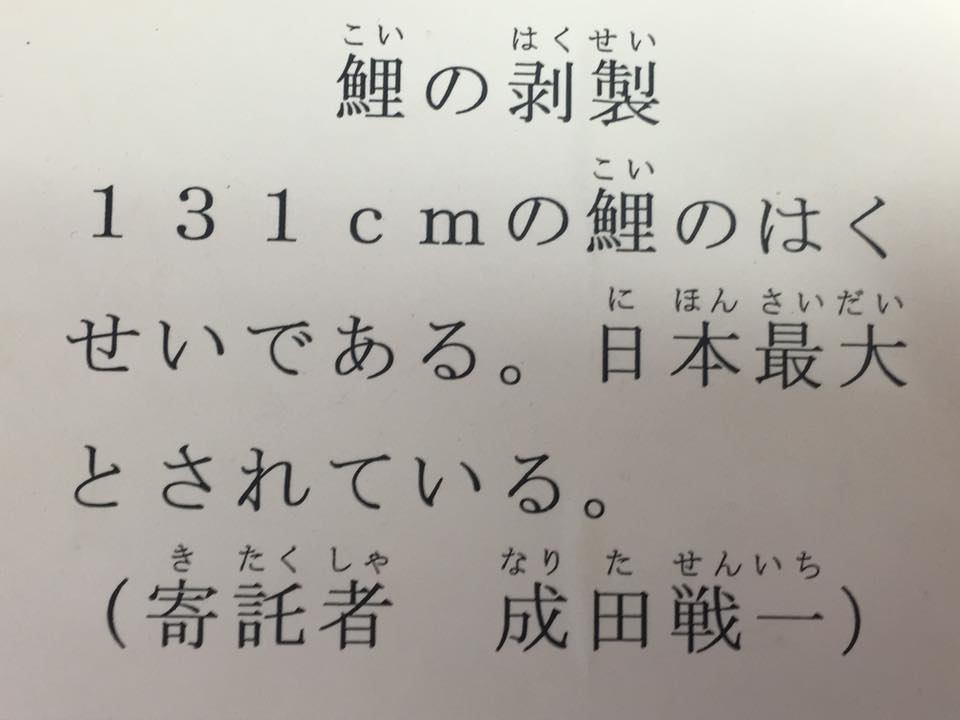 こい はくせい
鯉の剥製
こい
１３１ｃｍの鯉のはく
にほんさいだい
せいである。日本最大
とされている。
きたくしゃ なりたせんいち
（寄託者　成田戦一）